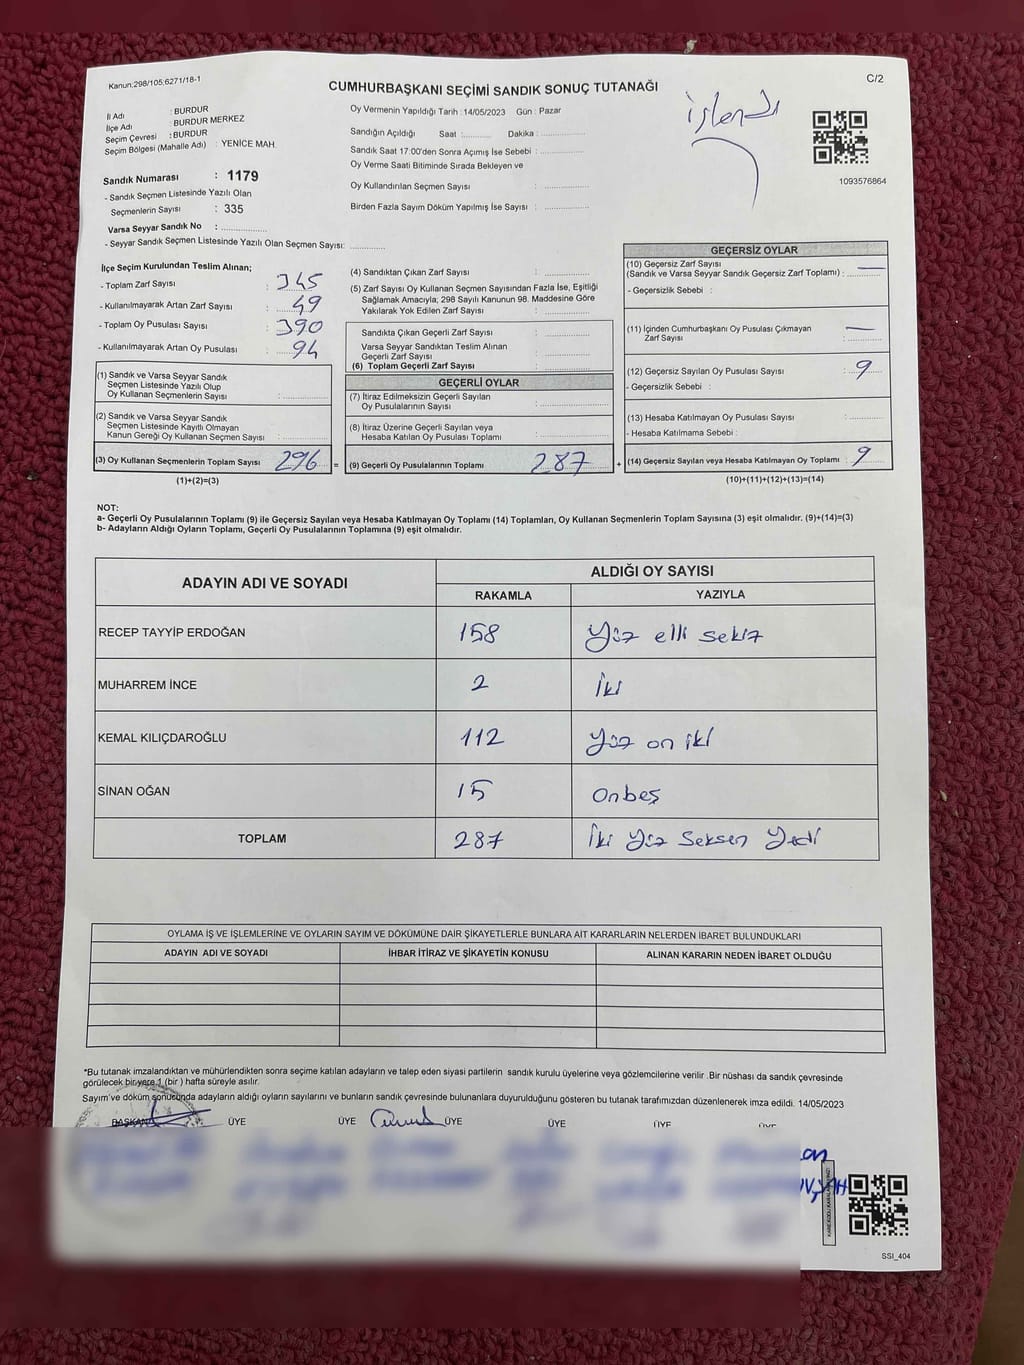 Kanun:298/105,6271/18-1
CUMHURBAŞKANI SEÇİMİ SANDIK SONUÇ TUTANAĞI
C/2
İl Adı : BURDUR
İlçe Adı : BURDUR MERKEZ
Seçim Çevresi : BURDUR
Seçim Bölgesi (Mahalle Adı) : YENİCE MAH.
Sandık Numarası : 1179
- Sandık Seçmen Listesinde Yazılı Olan
Seçmenlerin Sayısı : 335
Varsa Seyyar Sandık No :
- Seyyar Sandık Seçmen Listesinde Yazılı Olan Seçmen Sayısı:
Oy Vermenin Yapıldığı Tarih : 14/05/2023 Gün : Pazar
Sandığın Açıldığı Saat : Dakika :
Sandık Saat 17:00'den Sonra Açımış İse Sebebi :
Oy Verme Saati Bitiminde Sırada Bekleyen ve
Oy Kullandırılan Seçmen Sayısı :
Birden Fazla Sayım Döküm Yapılmış İse Sayısı :
işlendi
1093576864
İlçe Seçim Kurulundan Teslim Alınan;
- Toplam Zarf Sayısı : 345
- Kullanılmayarak Artan Zarf Sayısı : 49
- Toplam Oy Pusulası Sayısı : 390
- Kullanılmayarak Artan Oy Pusulası : 94
(1) Sandık ve Varsa Seyyar Sandık
Seçmen Listesinde Yazılı Olup
Oy Kullanan Seçmenlerin Sayısı :
(2) Sandık ve Varsa Seyyar Sandık
Seçmen Listesinde Kayıtlı Olmayan
Kanun Gereği Oy Kullanan Seçmen Sayısı :
(3) Oy Kullanan Seçmenlerin Toplam Sayısı : 296 =
(1)+(2)=(3)
(4) Sandıktan Çıkan Zarf Sayısı :
(5) Zarf Sayısı Oy Kullanan Seçmen Sayısından Fazla İse, Eşitliği
Sağlamak Amacıyla, 298 Sayılı Kanunun 98. Maddesine Göre
Yakılarak Yok Edilen Zarf Sayısı :
Sandıkta Çıkan Geçerli Zarf Sayısı :
Varsa Seyyar Sandıktan Teslim Alınan
Geçerli Zarf Sayısı :
(6) Toplam Geçerli Zarf Sayısı :
GEÇERLİ OYLAR
(7) İtiraz Edilmeksizin Geçerli Sayılan
Oy Pusulalarının Sayısı :
(8) İtiraz Üzerine Geçerli Sayılan veya
Hesaba Katılan Oy Pusulası Toplamı :
(9) Geçerli Oy Pusulalarının Toplamı 287 +
GEÇERSİZ OYLAR
(10) Geçersiz Zarf Sayısı
(Sandık ve Varsa Seyyar Sandık Geçersiz Zarf Toplamı) : —
- Geçersizlik Sebebi :
(11) İçinden Cumhurbaşkanı Oy Pusulası Çıkmayan
Zarf Sayısı : —
(12) Geçersiz Sayılan Oy Pusulası Sayısı : 9
- Geçersizlik Sebebi :
(13) Hesaba Katılmayan Oy Pusulası Sayısı :
- Hesaba Katılmama Sebebi :
(14) Geçersiz Sayılan veya Hesaba Katılmayan Oy Toplamı : 9
(10)+(11)+(12)+(13)=(14)
NOT:
a- Geçerli Oy Pusulalarının Toplamı (9) ile Geçersiz Sayılan veya Hesaba Katılmayan Oy Toplamı (14) Toplamları, Oy Kullanan Seçmenlerin Toplam Sayısına (3) eşit olmalıdır. (9)+(14)=(3)
b- Adayların Aldığı Oyların Toplamı, Geçerli Oy Pusulalarının Toplamına (9) eşit olmalıdır.
ADAYIN ADI VE SOYADI ALDIĞI OY SAYISI
RAKAMLA YAZIYLA
RECEP TAYYİP ERDOĞAN 158 Yüz elli sekiz
MUHARREM İNCE 2 İki
KEMAL KILIÇDAROĞLU 112 Yüz on iki
SİNAN OĞAN 15 Onbeş
TOPLAM 287 İki Yüz Seksen Yedi
OYLAMA İŞ VE İŞLEMLERİNE VE OYLARIN SAYIM VE DÖKÜMÜNE DAİR ŞİKAYETLERLE BUNLARA AİT KARARLARIN NELERDEN İBARET BULUNDUKLARI
ADAYIN ADI VE SOYADI İHBAR İTİRAZ VE ŞİKAYETİN KONUSU ALINAN KARARIN NEDEN İBARET OLDUĞU
*Bu tutanak imzalandıktan ve mühürlendikten sonra seçime katılan adayların ve talep eden siyasi partilerin sandık kurulu üyelerine veya gözlemcilerine verilir .Bir nüshası da sandık çevresinde
görülecek bir yere 1 (bir ) hafta süreyle asılır.
Sayım ve döküm sonucunda adayların aldığı oyların sayılarını ve bunların sandık çevresinde bulunanlara duyurulduğunu gösteren bu tutanak tarafımızdan düzenlenerek imza edildi. 14/05/2023
BAŞKAN ÜYE ÜYE ÜYE ÜYE ÜYE ÜYE
SSI_404